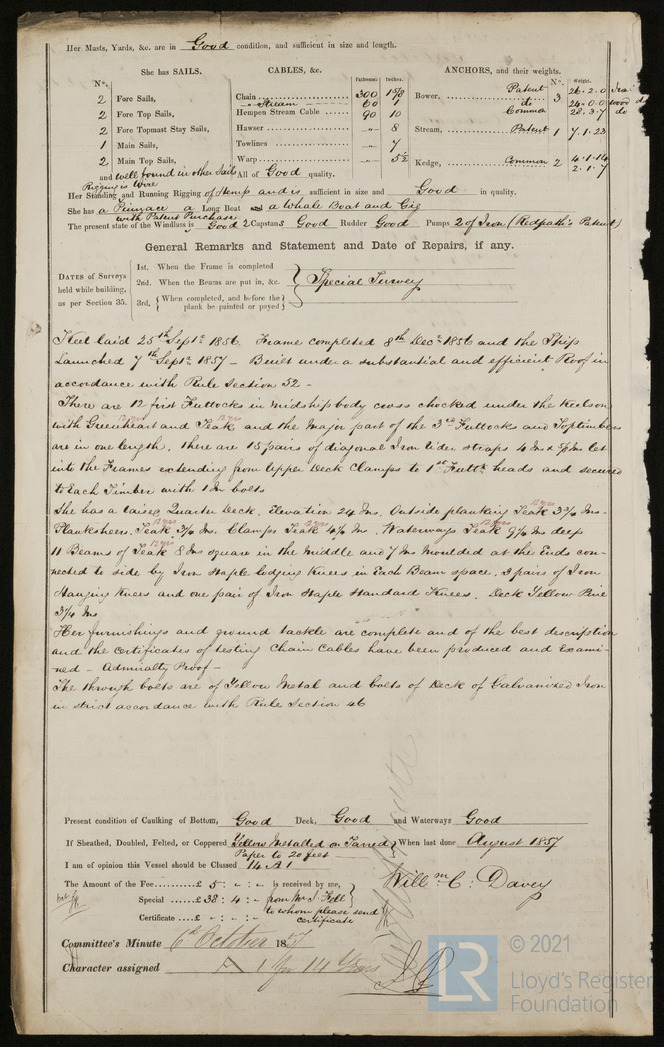 Her Masts, Yards, &c. are in Good condition, and sufficient in size and length.
She has SAILS.
No.
2 Fore Sails,
2 Fore Top Sails,
2 Fore Topmast Stay Sails,
1 Main Sails,
2 Main Top Sails,
and well found in other Sails
CABLES, &c.
Fathoms. Inches.
Chain 300 1 5/8
Stream 60 1
Hempen Stream Cable 90 10
Hawser „ 8
Towlines „ 7
Warp „ 5½
All of Good quality.
ANCHORS, and their weights.
No. Weight.
Bower, Patent 3 26.2.0 Iron
do 24.0.0 wood
Common 22.3.7 do
Stream, Patent 1 7.1.23
Kedge, Common 2 4.1.14
2.1.7
Rigging is Wire
Her Standing and Running Rigging of Hemp and is sufficient in size and Good in quality.
She has a Pinnace a Long Boat and a Whale Boat and Gig
with Patent Purchase
The present state of the Windlass is Good 2 Capstans Good Rudder Good Pumps 2 of Iron (Redpath's Patent)
General Remarks and Statement and Date of Repairs, if any.
DATES of Surveys held while building, as per Section 35.
1st. When the Frame is completed
2nd. When the Beams are put in, &c.
3rd. When completed, and before the plank be painted or payed
Special Survey
Keel laid 25th Sept. 1856. Frame completed 8th Dec. 1856 and the Ship
Launched 7th Sept. 1857 – Built under a substantial and efficient Roof in
accordance with Rule Section 52 –
There are 12 first Futtocks in midship body cross chocked under the Keelson
with Greenheart and Teak and the major part of the 3rd Futtocks and Toptimbers
are in one length. there are 15 pairs of diagonal Iron rider straps 4 Ins x 5/8 In let
into the Frames extending from Upper Deck Clamps to 1st Futtk heads and secured
to Each Timber with 1 In bolts
She has a raised Quarter Deck. Elevation 24 Ins. Outside planking Teak 3½ Ins.
Plankshears, Teak 3½ Ins. Clamps Teak 4½ In. Waterways Teak 9½ Ins deep
11 Beams of Teak 8 Ins square in the middle and 7 Ins moulded at the Ends con-
nected to side by Iron Staple lodging Knees in Each Beam space. 3 pairs of Iron
Hanging Knees and one pair of Iron Staple Standard Knees. Deck Yellow Pine
3½ Ins
Her furnishings and ground tackle are complete and of the best description
and the Certificates of testing Chain Cables have been produced and Exami-
ned – Admiralty Proof –
The through bolts are of Yellow Metal and bolts of Deck of Galvanized Iron
in strict accordance with Rule Section 46
Present condition of Caulking of Bottom, Good Deck, Good and Waterways Good
If Sheathed, Doubled, Felted, or Coppered Yellow Metalled on Tarred When last done August 1857
Paper to 20 feet
I am of opinion this Vessel should be Classed 14 A 1
The Amount of the Fee £ 5 : „ : „ is received by me,
Special £ 38 : 4 : „ from Mr. J. Fell
to whom please send certificate
Certificate £ „ : „ : „
Willm. C. Davey
Committee's Minute 6th October 1857
Character assigned A 1 for 14 Years
LR
© 2021
Lloyd's Register
Foundation